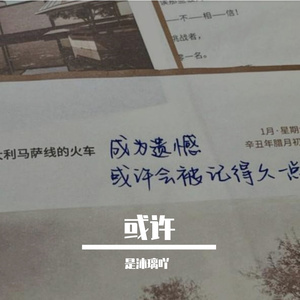 一不一相一信！
挑战者。
一名。
大利马萨线的火车
成为遗憾
或许会被记得久一点
1月·星期
辛丑年腊月初
或许
是沐璃吖